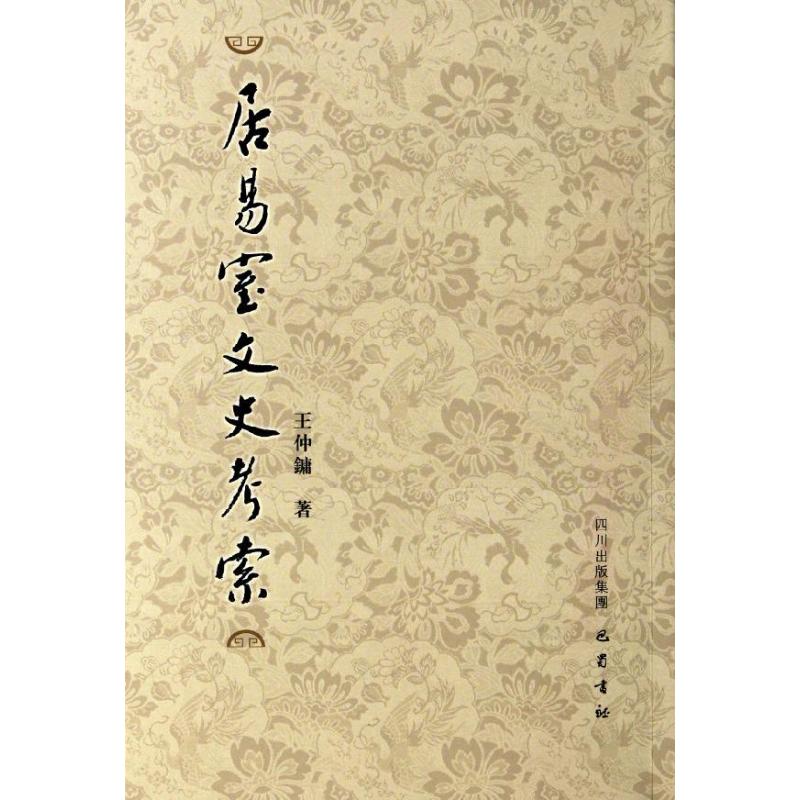 居易室文史考索
王仲鏞 著
四川出版集團 巴蜀書社